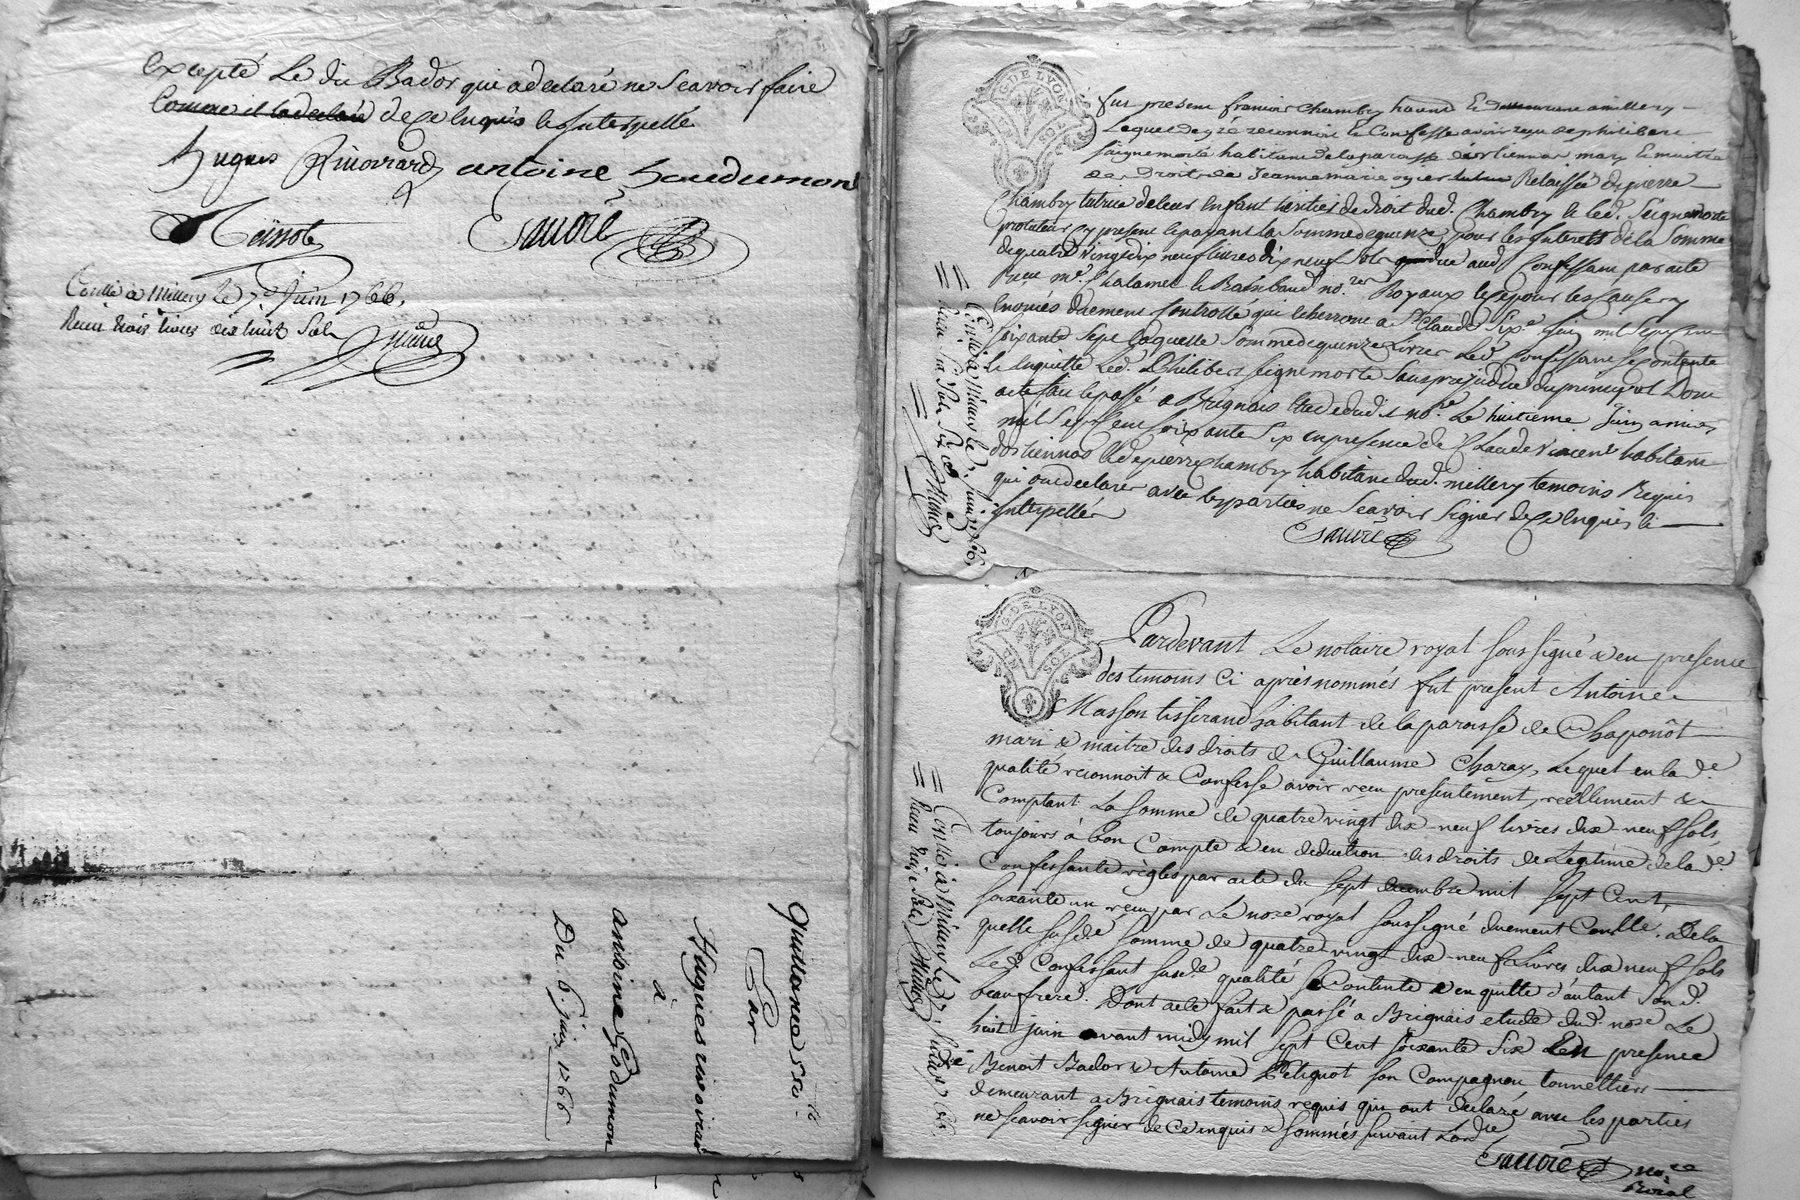 excepté Le dit Bador qui a declaré ne Scavoir faire
Comme il la declaré de Ce Enquis & Interpellé
hugues Rivoirard antoine Goudumond
Meïnot Sauore
Conllé à Millery le 7e Juin 1766,
Receu trois livres dix huit Sols
Quittance
Par
Hugues rivoirard
à
antoine Godumon
Du 6 juin 1766
GDE LYON
fut present francois Chambry demeurant a millery
Lequel de gré reconnoit & Confesse avoir reçu de philibert
Seignemorte habitant de la paroisse d'orliennas mary & maitre
des Droits de Jeanne marie Relaissée de pierre
Chambry tutrice de leurs Enfant heritier de droit dud. Chambry & led. Seignemorte
protuteur cy present & payant La Somme de quinze pour les Interets de la Somme
de quatre Vingt dix neuf livres dix neuf Sols due aud. Confessant par acte
Receu me. Chalamel & Raimbaud nores. Royaux & ce pour les Causes y
Enoncés duement Controllé qui Echerront a St. Claude Six Juin mil Sept Cent
Soixante Sept Laquelle Somme de quinze Livres Led. Confessant Se contente
& Enquitte Led. Philibert Seignemorte Sans prejudice du principal Dont
acte fait & passé a Brignais Etude dud. nore. Le huitieme Juin apres midy
mil Sept Cent Soixante Six en presence de Claude Vincent habitant
dorlienas & de pierre Chambry habitant dud. millery temoins Requis
qui ont declaré avec les parties ne Scavoir Signer de Ce Enquis &
Interpellés
Sauore
Conllé à Millery le 7 Juin 1766
GDE LYON
Pardevant Le notaire royal Soussigné & en presence
des temoins Ci après nommés fut present Antoine
Masson tisserand habitant de la paroisse de Chaponôt
mari & maitre des droits de Guillaume Charay, Lequel en la de.
qualité reconnoit & Confesse avoir receu presentement, reellement &
Comptant La Somme de quatre vingt dix-neuf livres dix-neuf Sols,
toujours à bon Compte & en deduction des droits de Legitime de la de.
Confessante règlés par acte du Sept decembre mil Sept Cent,
Soixante un receu par Le nore royal Soussigné duement Conllé. De la
quelle Susde. Somme de quatre vingt dix-neuf Livres dix neuf Sols
Led. Confessant Susde. qualité Se Contente & en quitte d'autant Sond.
beaufrere. Dont acte fait & passé à Brignais etude dud. nore Le
huit juin avant midy mil Sept Cent Soixante Six & en presence
Benoit Bador & Antoine Petignot Son Compagnon tonnelliers
demeurant a Brignais temoins requis qui ont declaré avec les parties
ne Scavoir Signer de Ce enquis & Sommés Suivant Lorde
Sauore nore
Royal
Conllé à Millery le